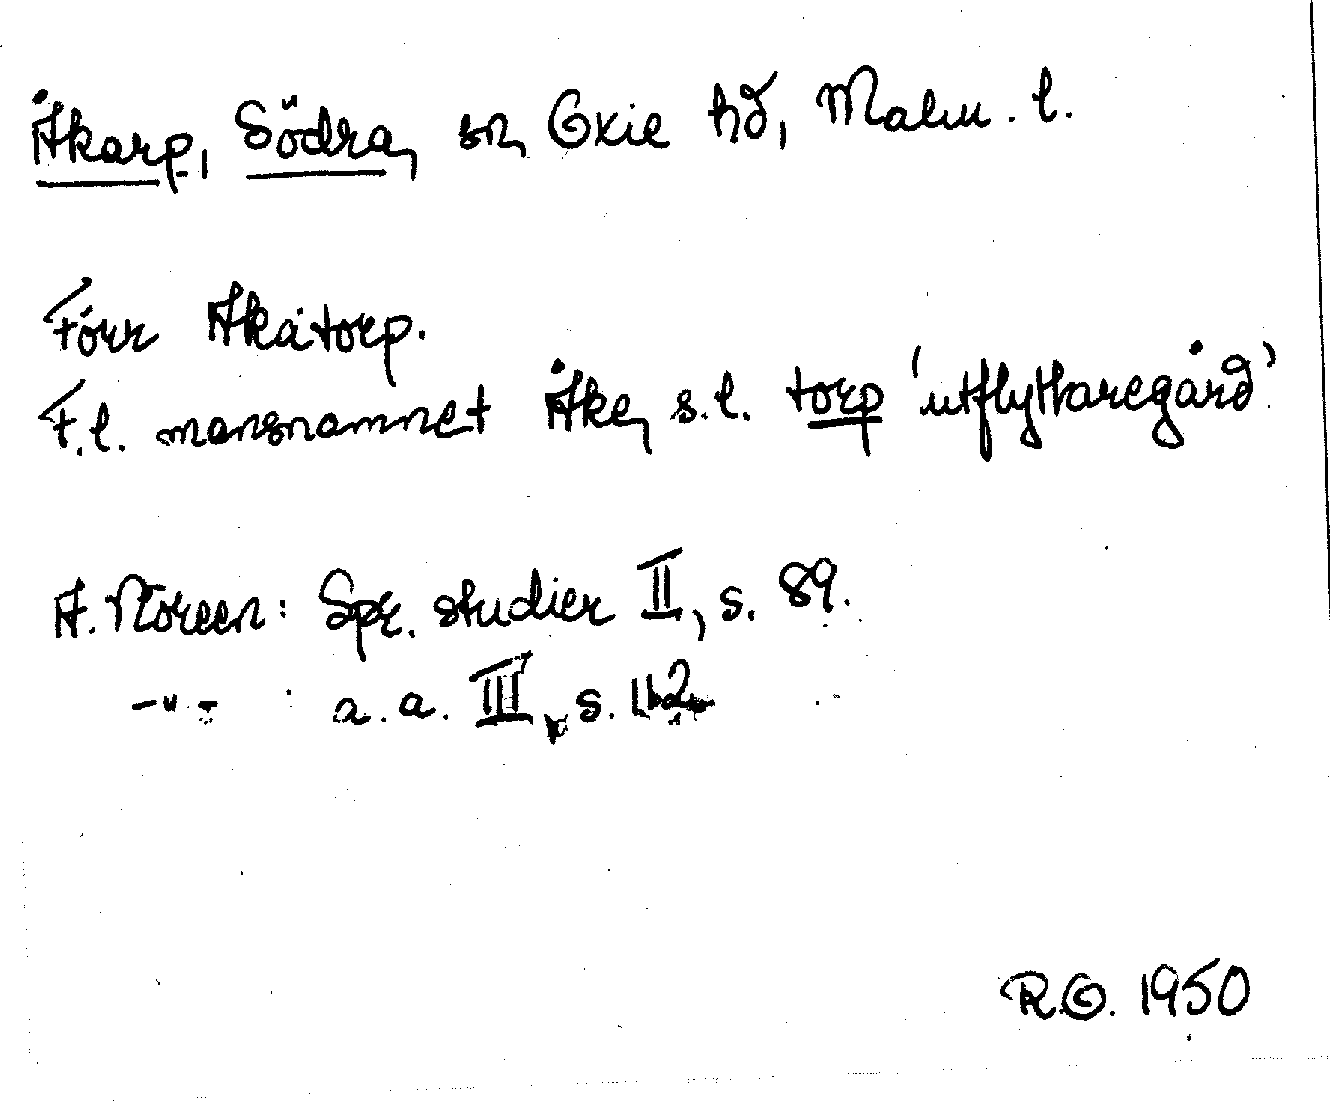 Åkarp, Södra, sn, Oxie hd, Malm. l.
Förr Akatorp.
F.l. mansnamnet Åke, s.l. torp 'utflyttaregård'.
A. Noreen: Spr. studier II, s. 89.
-"- : a.a. III, s.
R.G. 1950